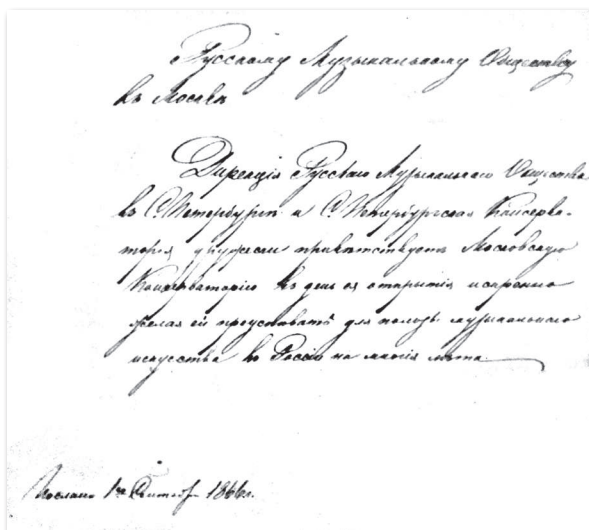 Русскому Музыкальному Обществу
въ Москвѣ
Дирекція Русскаго Музыкальнаго Общества
въ С.Петербургѣ и С.Петербургская Консерва-
торія дружески привѣтствуютъ Московскую
Консерваторію въ день ея открытія искренно
желая ей процвѣтать для пользы музыкальнаго
искусства въ Россіи на многія лѣта
Послано 1го Сентября 1866г.